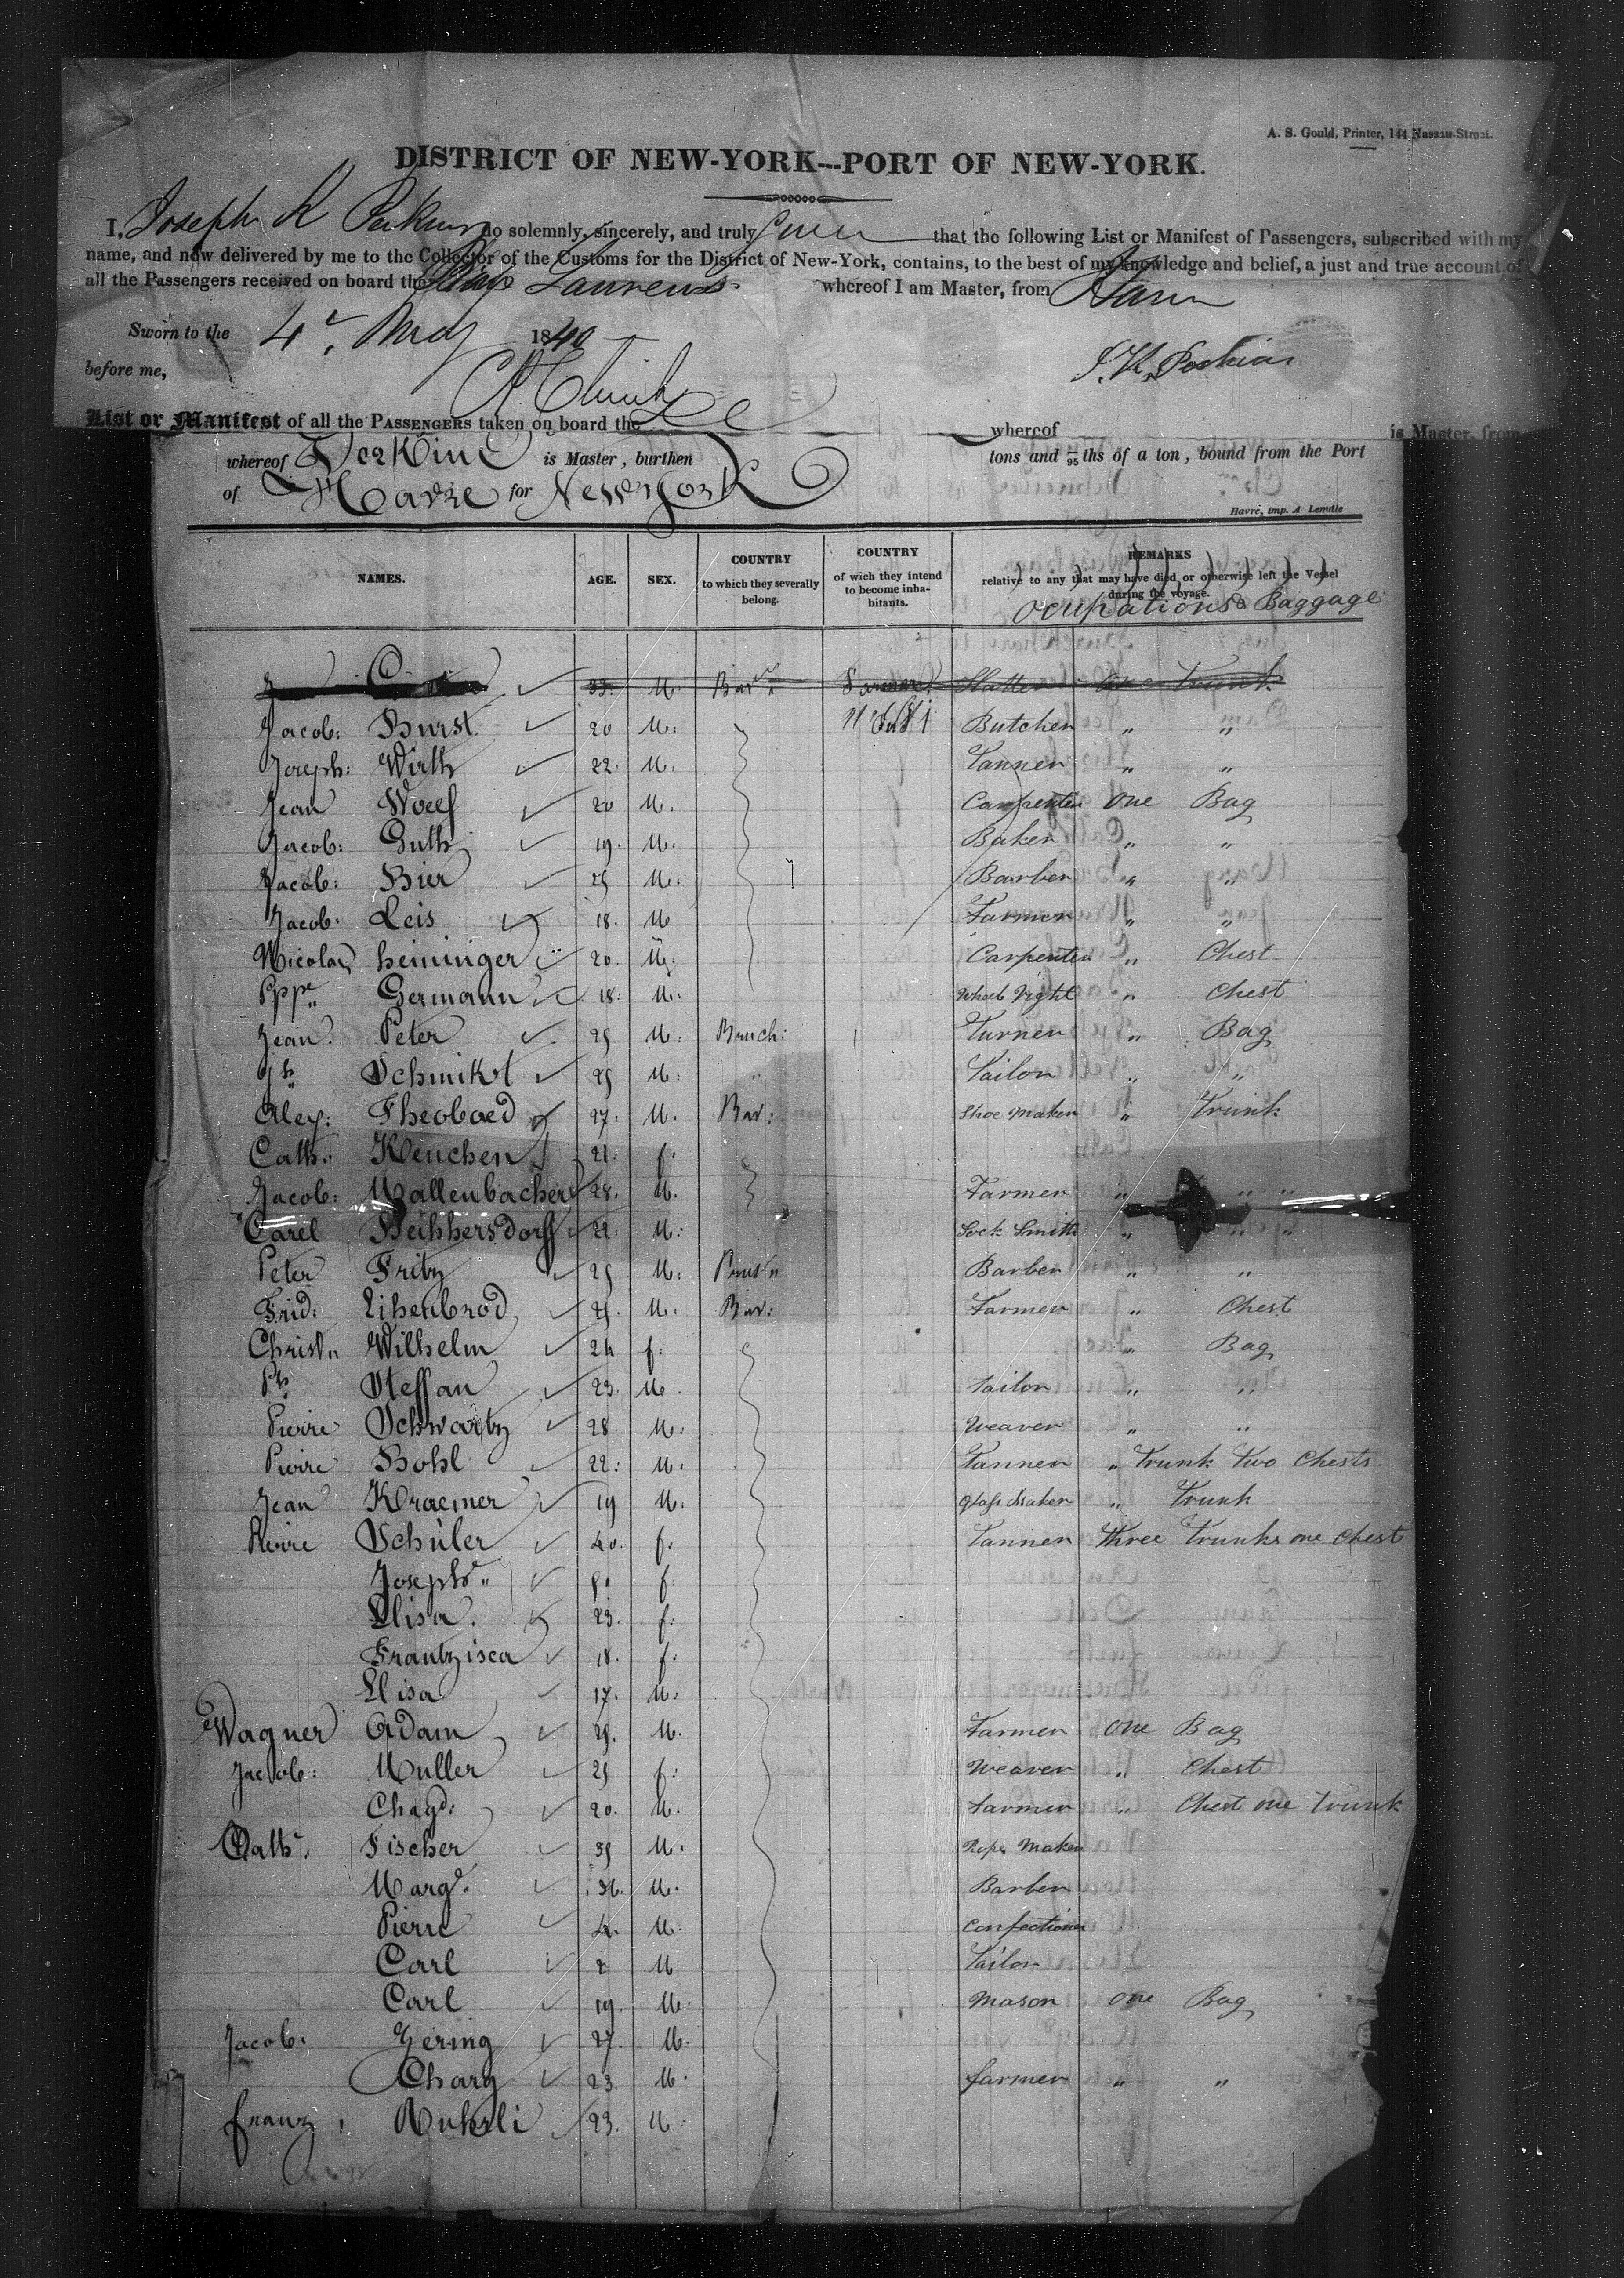 A. S. Gould, Printer, 144 Nassau-Street.
DISTRICT OF NEW-YORK---PORT OF NEW-YORK.
I, Joseph K Perkins do solemnly, sincerely, and truly swear that the following List or Manifest of Passengers, subscribed with my
name, and now delivered by me to the Collector of the Customs for the District of New-York, contains, to the best of my knowledge and belief, a just and true account of
all the Passengers received on board the Ship Laurens whereof I am Master, from Havre
Sworn to the 4th May 1840
before me,
J. K. Perkins
List or Manifest of all the PASSENGERS taken on board the
whereof is Master, from
whereof Perkins is Master, burthen tons and /95 ths of a ton, bound from the Port
of Havre for New York
Havre, imp. A Lemâle
NAMES. AGE. SEX. COUNTRY to which they severally belong. COUNTRY of wich they intend to become inhabitants. REMARKS relative to any that may have died, or otherwise left the Vessel during the voyage.
ocupations & Baggage
33. M. Bav. Trunk
Jacob: Burst. 20 M. Butcher " "
Joseph: Wirth 22. M. Tanner " "
Jean Woelf 20 M. Carpenter one Bag
Jacob: Guth 19. M. Baker " "
Jacob: Bier 25 M. Barber " "
Jacob: Leis 18. M Farmer " "
Nicolas heininger 20. M. Carpenter " Chest
Ppe Germann 18. M. Wheelright " Chest
Jean Peter 25 M. Turner " Bag
Schmikt 25 M. Tailor " "
Alex: Theobaed 27. M. Bav: Shoe maker " Trunk
Cath. Keuchen 21. f.
Jacob: Mallenbacher 28. M. Farmer " " "
Carel 22. M. Lock Smith " " "
Peter Fritz 25 M. Barber " "
Frid: Eihenbrod 25. M. Bav: Farmer " Chest
Christn Wilhelm 24 f. " Bag
Ph Steffan 23. M. Tailor " "
Pierre Schwartz 28 M. Weaver " "
Pierre Bohl 22. M. Tanner " Trunk two Chests
Jean Kraemer 19 M. Glass Maker " Trunk
Pierre Schüler 40. f. Tanner three Trunks one Chest
Joseph " f.
Elisa. 23. f.
Frantzisca 18. f.
Elisa 17. M.
Wagner Adam 25. M. Farmer one Bag
Jacob: Muller 25 f. Weaver " Chest
20. M. Farmer " Chest one Trunk
Cath. Fischer 35 M. Rope Maker
Marg. 36. M. Barber
Pierre 4. M. Confectioner
Carl 2 M Tailor
Carl 19. M. Mason one Bag
Jacob: Gering 27. M.
Charg 23. M. farmer " "
franz, Ruhrli 23. M